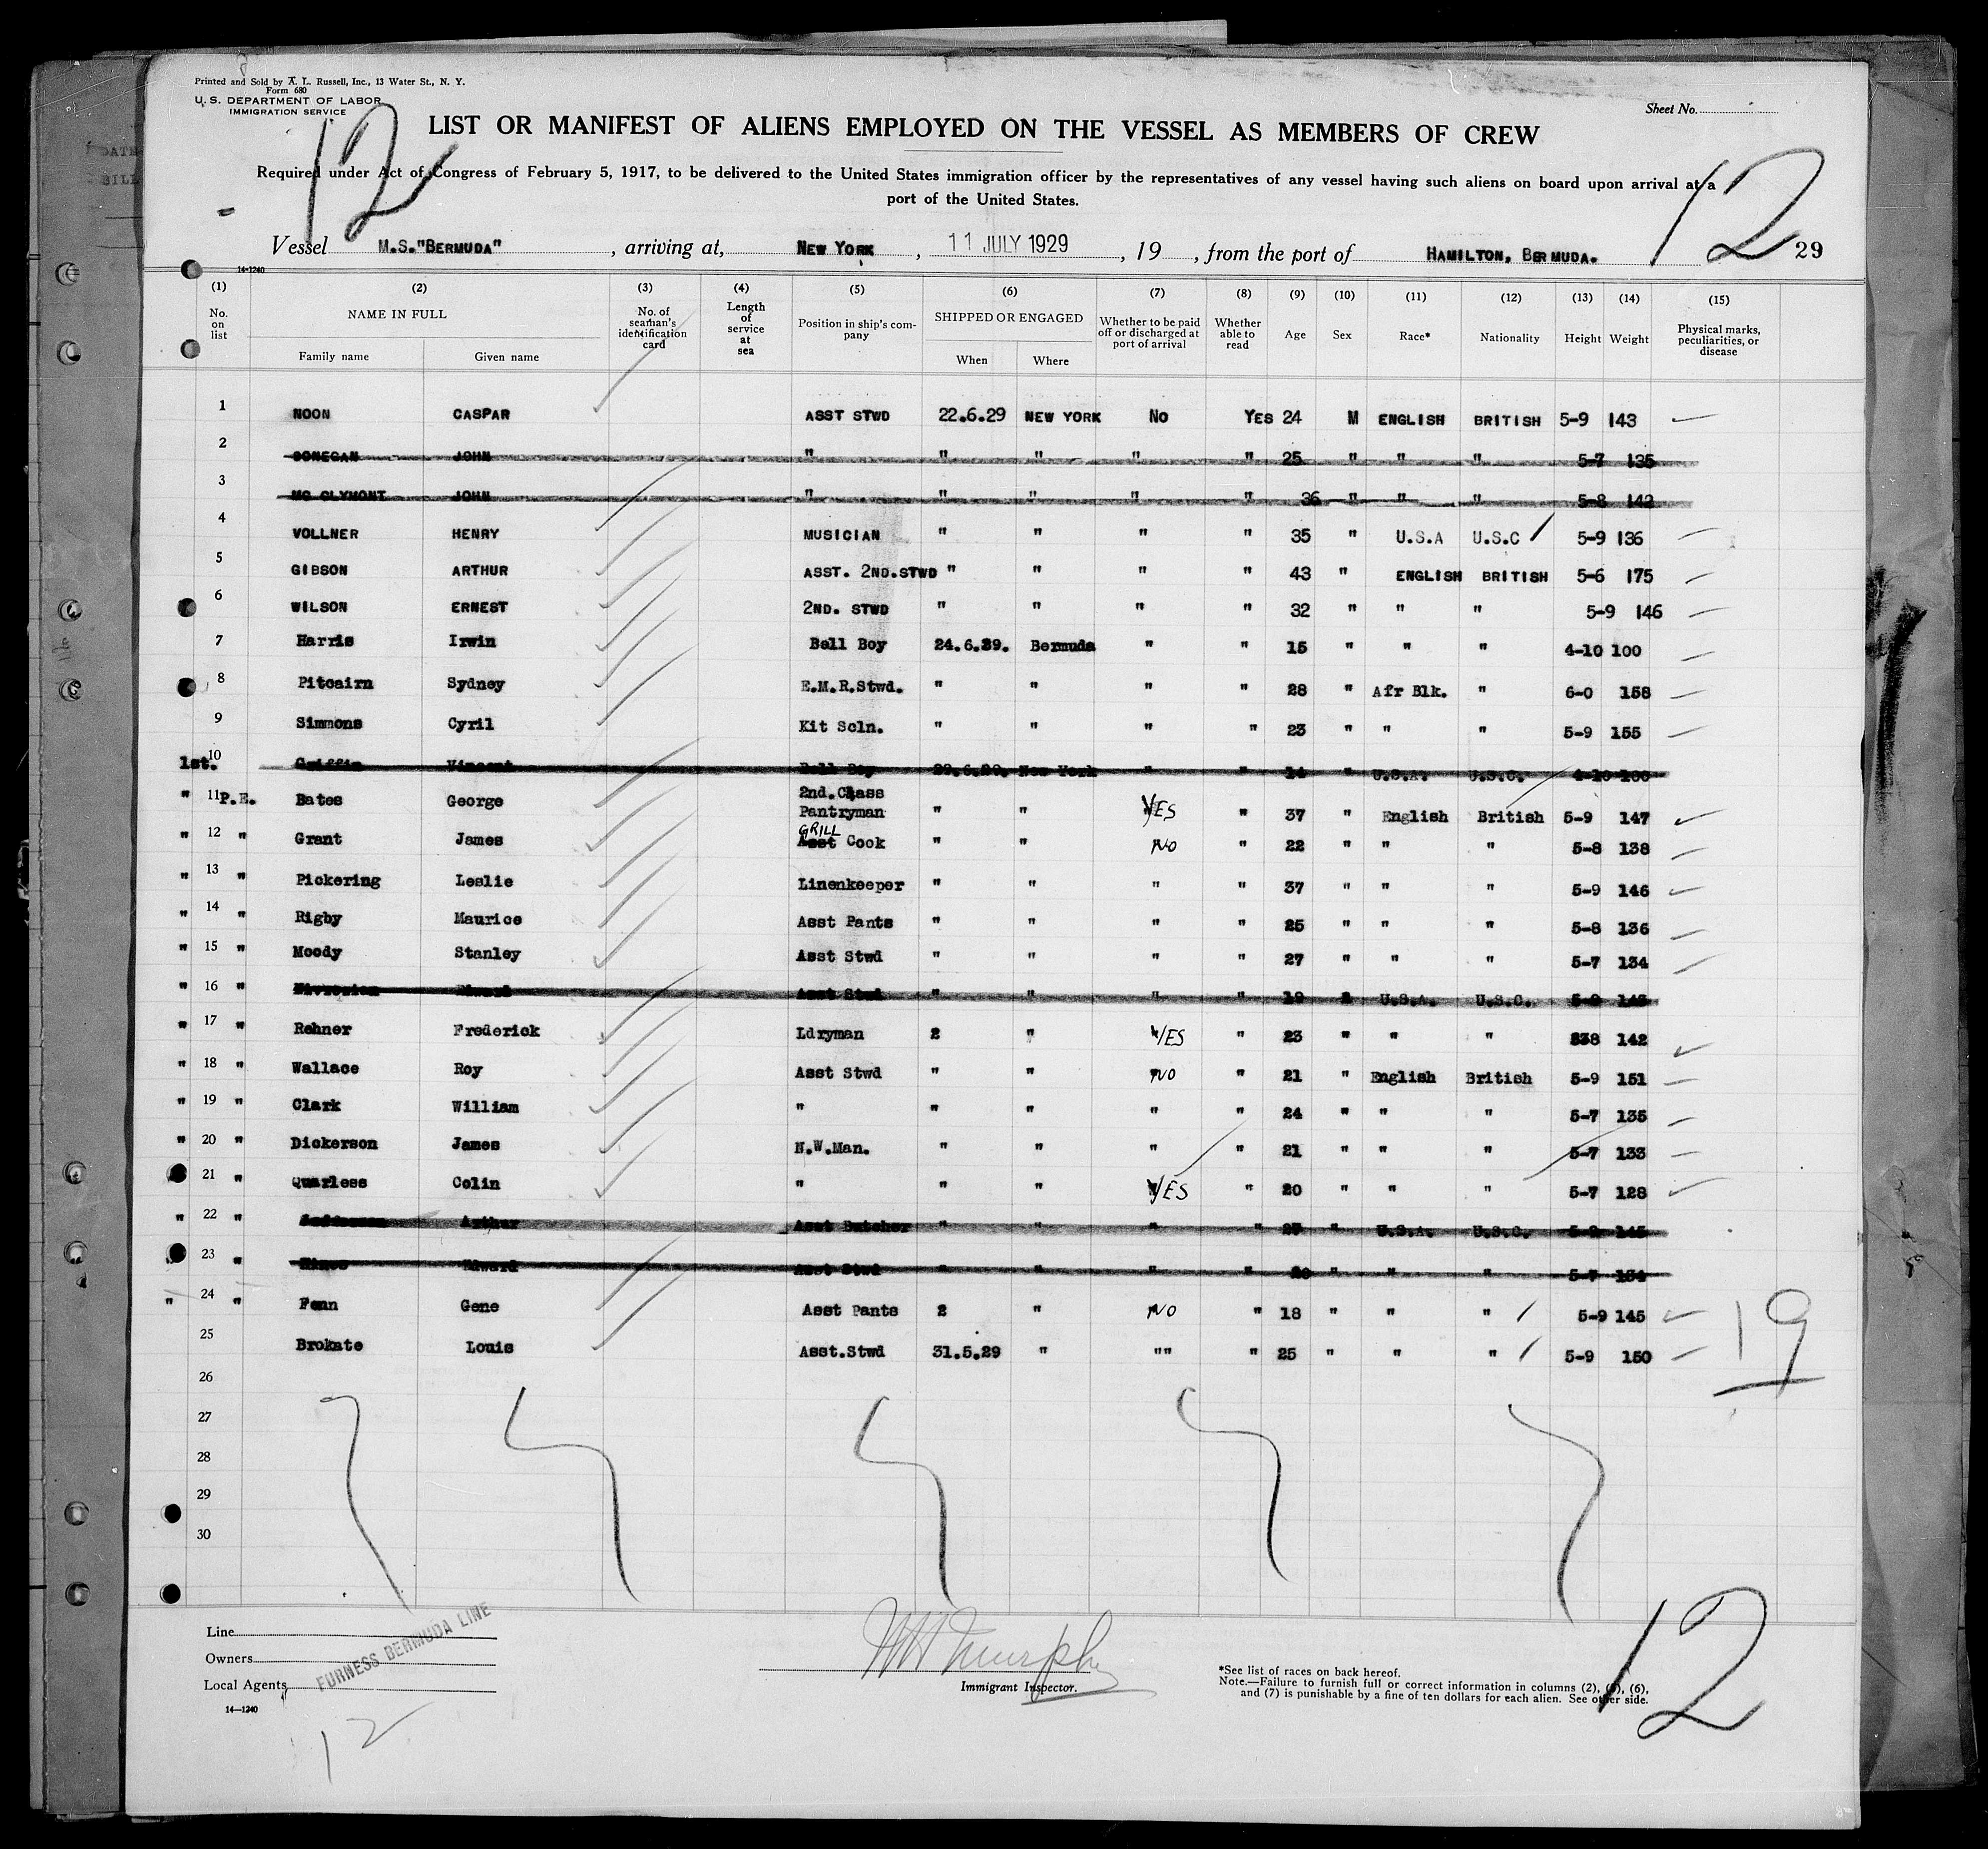 Printed and Sold by A. L. Russell, Inc., 13 Water St., N. Y.
Form 680
U. S. DEPARTMENT OF LABOR
IMMIGRATION SERVICE
Sheet No.
12
LIST OR MANIFEST OF ALIENS EMPLOYED ON THE VESSEL AS MEMBERS OF CREW
Required under Act of Congress of February 5, 1917, to be delivered to the United States immigration officer by the representatives of any vessel having such aliens on board upon arrival at a
port of the United States.
12
Vessel M.S."BERMUDA" , arriving at, NEW YORK , 11 JULY 1929 , 19 , from the port of HAMILTON, BERMUDA. 29
14-1240
(1) (2) (3) (4) (5) (6) (7) (8) (9) (10) (11) (12) (13) (14) (15)
No. on list NAME IN FULL No. of seaman's identification card Length of service at sea Position in ship's company SHIPPED OR ENGAGED Whether to be paid off or discharged at port of arrival Whether able to read Age Sex Race* Nationality Height Weight Physical marks, peculiarities, or disease
Family name Given name When Where
1 NOON CASPAR ASST STWD 22.6.29 NEW YORK No YES 24 M ENGLISH BRITISH 5-9 143
2 DONEGAN JOHN " " " " " 25 " " " 5-7 135
3 MC CLYMONT JOHN " " " " " 36 " " " 5-8 142
4 VOLLNER HENRY MUSICIAN " " " " 35 " U.S.A U.S.C 5-9 136
5 GIBSON ARTHUR ASST. 2ND.STWD " " " " 43 " ENGLISH BRITISH 5-6 175
6 WILSON ERNEST 2ND. STWD " " " " 32 " " " 5-9 146
7 Harris Irwin Bell Boy 24.6.29. Bermuda " " 15 " " " 4-10 100
8 Pitcairn Sydney E.M.R.Stwd. " " " " 28 " Afr Blk. " 6-0 158
9 Simmons Cyril Kit Scln. " " " " 23 " " " 5-9 155
1st. 10 Griffin Vincent Bell Boy 29.6.29. New York " " 14 " U.S.A. U.S.C. 4-10 100
" 11 P.E. Bates George 2nd.Class Pantryman " " YES " 37 " English British 5-9 147
" 12 " Grant James Asst GRILL Cook " " NO " 22 " " " 5-8 138
" 13 " Pickering Leslie Linenkeeper " " " " 37 " " " 5-9 146
" 14 " Rigby Maurice Asst Pants " " " " 25 " " " 5-8 136
" 15 " Moody Stanley Asst Stwd " " " " 27 " " " 5-7 134
" 16 " Asst Stwd " " " " 19 U.S.A. U.S.C.
" 17 " Rehner Frederick Ldryman 2 " YES " 23 " " " 142
" 18 " Wallace Roy Asst Stwd " " NO " 21 " English British 5-9 151
" 19 " Clark William " " " " " 24 " " " 5-7 135
" 20 " Dickerson James N.W.Man. " " " " 21 " " " 5-7 133
" 21 " Quarless Colin " " " YES " 20 " " " 5-7 128
" 22 " Arthur Asst Butcher " " " " " U.S.A. U.S.C. 145
23 " Edward Asst Stwd " " " " " " " 5-7 134
" 24 " Fenn Gene Asst Pants 2 " NO " 18 " " " 5-9 145
25 Brokate Louis Asst.Stwd 31.5.29 " "" " 25 " " " 5-9 150
19
26
27
28
29
30
Line
Owners
Local Agents
FURNESS BERMUDA LINE
14—1240
12
Murphy
Immigrant Inspector.
*See list of races on back hereof.
Note.—Failure to furnish full or correct information in columns (2), (5), (6),
and (7) is punishable by a fine of ten dollars for each alien. See other side.
12